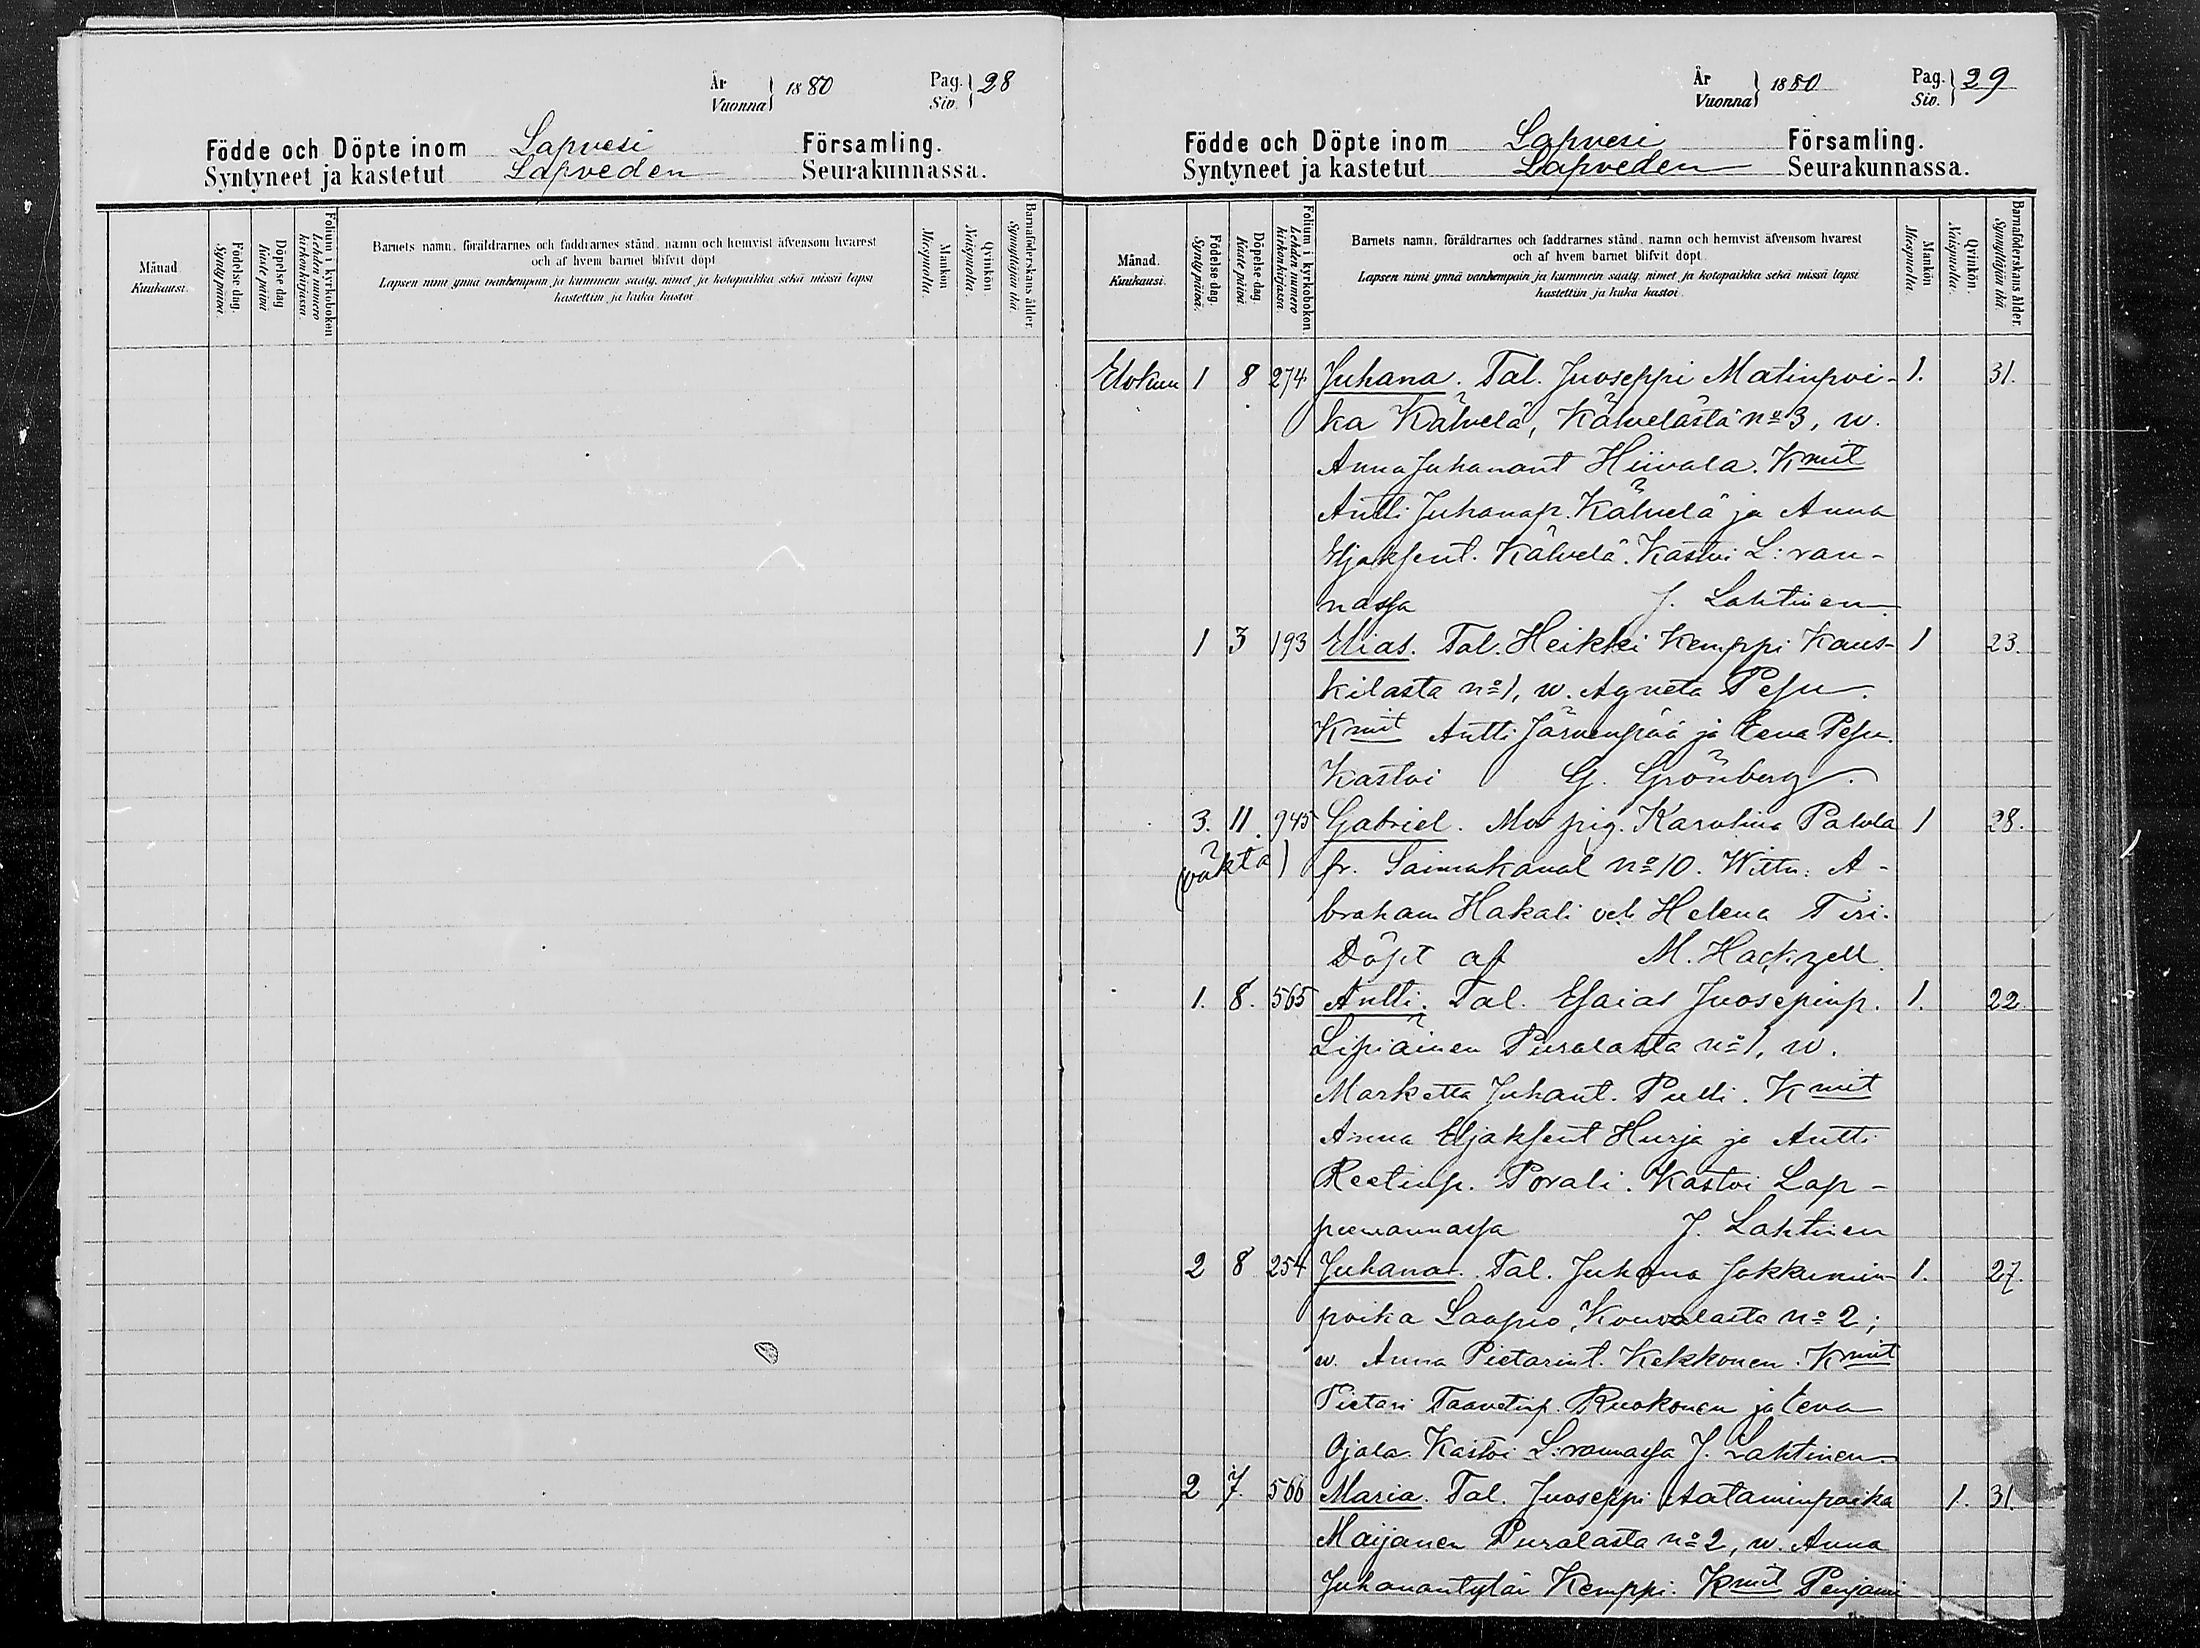 År
Vuonna } 1880
Pag.
Siv. } 28
Födde och Döpte inom Lapvesi Församling.
Syntyneet ja kastetut Lapveden Seurakunnassa.
Månad
Kuukausi.
Födelse dag.
Synty päivä.
Döpelse dag
Kaste päivä
Folium i kyrkoboken
Lehden numero
kirkonkirjassa.
Barnets namn, föräldrarnes och faddrarnes stånd, namn och hemvist äfvensom hvarest
och af hvem barnet blifvit döpt
Lapsen nimi ynnä vanhempain ja kummein sääty, nimet ja kotopaikka sekä missä lapsi
kastettiin ja kuka kastoi
Mankön
Miespuolia.
Qvinkön
Naispuolia.
Barnaföderskans ålder.
Synnyttäjän ikä
År
Vuonna } 1880
Pag.
Siv. } 29
Födde och Döpte inom Lapvesi Församling.
Syntyneet ja kastetut Lapveden Seurakunnassa.
Månad.
Kuukausi.
Födelse dag.
Synty päivä.
Döpelse dag
Kaste päivä.
Folium i kyrkoboken.
Lehden numero
kirkonkirjassa.
Barnets namn, föräldrarnes och faddrarnes stånd, namn och hemvist äfvensom hvarest
och af hvem barnet blifvit döpt.
Lapsen nimi ynnä vanhempain ja kummein sääty, nimet ja kotopaikka sekä missä lapsi
kastettiin ja kuka kastoi.
Mankön
Miespuolia.
Qvinkön.
Naispuolia.
Barnaföderskans ålder.
Synnyttäjän ikä
Elokuu 1 8 274 Juhana. Tal. Juoseppi Matinpoi- 1. 31.
ka Kälvelä, Kälvelästä no 3, w.
Anna Juhanant Hiivala. Kmit
Antti Juhanap. Kälvelä ja Anna
Eljaksent. Kälvelä. Kastoi L:ran-
nassa J. Lahtinen.
1 3 193 Elias. Tal. Heikki Kemppi Kaus- 1 23.
kilasta no 1, w. Agneta Pesu.
Kmit Antti Järvenpää ja Eeva Pesu.
Kastoi G. Grönberg.
3. 11. 945 Gabriel. Mor pig. Karolina Patola 1 28.
(oäkta) fr. Saimakanal no 10. Wittn: A-
braham Hakali och Helena Tiri.
Döpt af M. Hackzell.
1. 8. 565 Antti. Tal. Esaias Juosepinp. 1. 22.
Lipiäinen Puralasta no 1, w.
Marketta Juhant. Pulli. Kmit
Anna Eljaksent Hurja ja Antti
Reetinp. Porali. Kastoi Lap-
peenrannassa J. Lahtinen
2 8 254 Juhana. Tal. Juhana Jakkumin- 1. 27.
poika Laapio, Kouvolasta no 2;
w. Anna Pietarint. Kekkonen. Kmit
Pietari Taavetinp. Ruokonen ja Eeva
Ojala. Kastoi L:rannassa J. Lahtinen.
2 7. 566 Maria. Tal. Juoseppi Aataminpoika 1. 31.
Maijanen Puralasta no 2, w. Anna
Juhanantytär Kemppi. Kmit Penjami